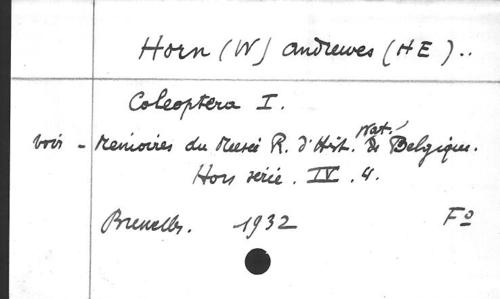 Horn (W) Andrewes (HE)..
Coleoptera I.
voir - Mémoires du Musée R. d'Hist. Nat. de Belgique.
Hors série. IV. 4.
Bruxelles. 1932 Fo